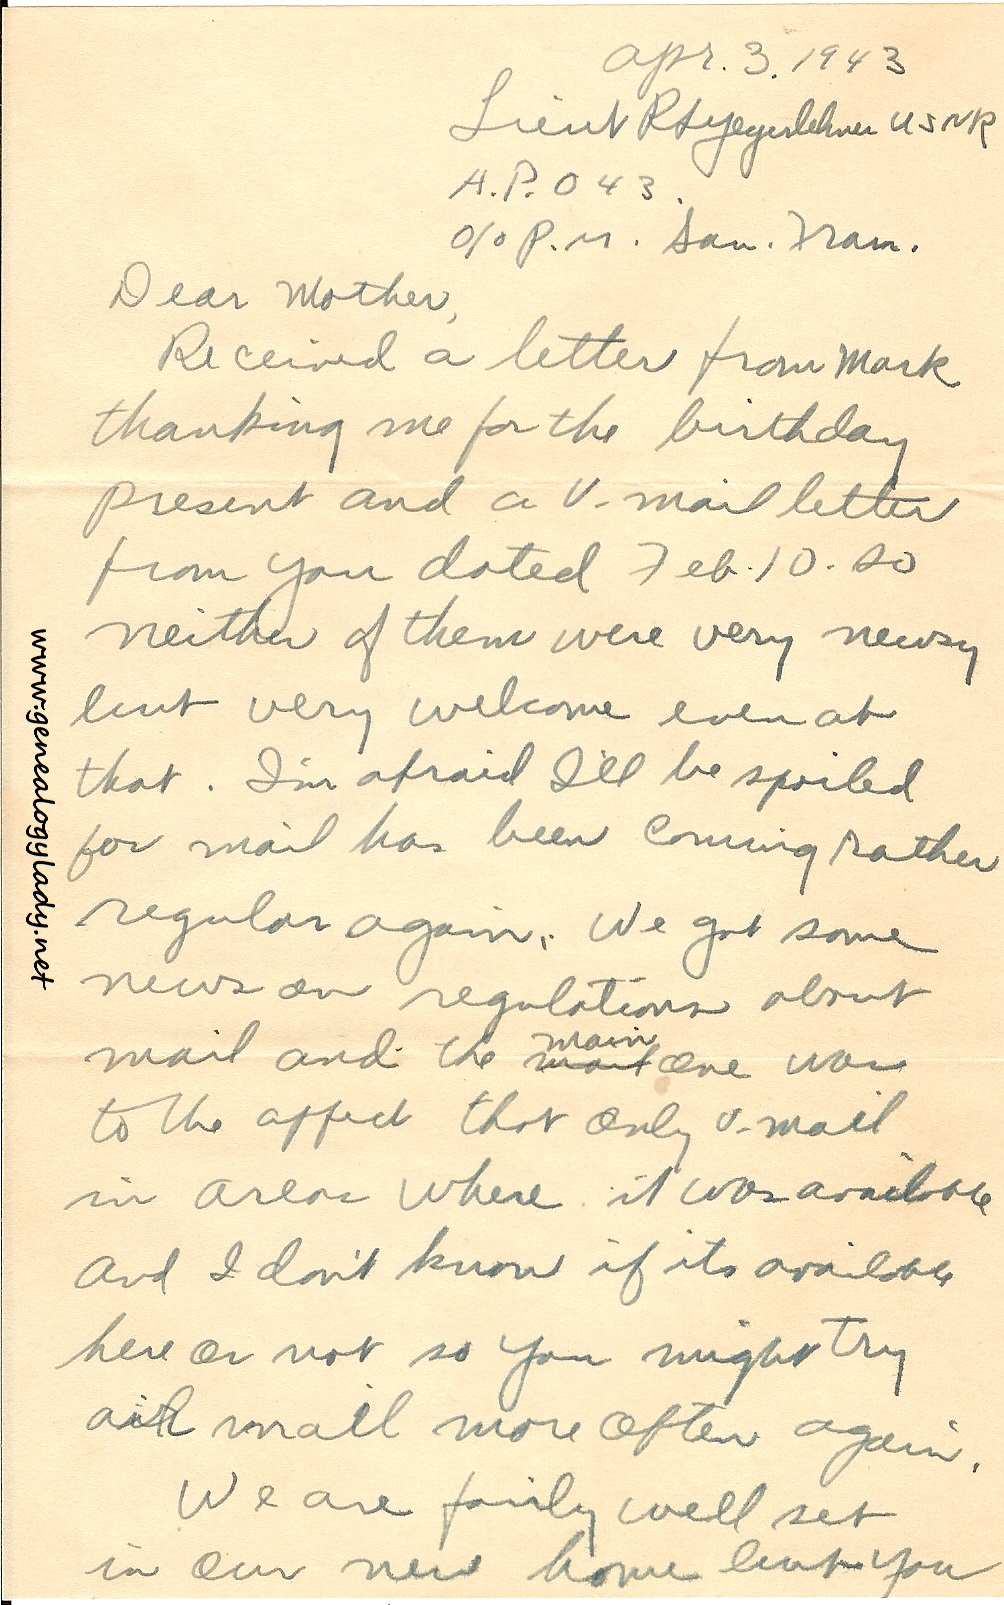 Apr. 3, 1943
Lieut R H Yegerlehner USNR
A.P.O 43.
c/o P.M. San. Fran.
Dear Mother,
Received a letter from Mark
thanking me for the birthday
present and a V-mail letter
from you dated Feb. 10. So
neither of them were very newsy
but very welcome even at
that. I'm afraid I'll be spoiled
for mail has been coming rather
regular again. We got some
news on regulations about
mail and the main one was
to the affect that only V-mail
in areas where it was available
and I don't know if its available
here or not so you might try
air mail more often again.
We are fairly well set
in our new home but you
www.genealogylady.net